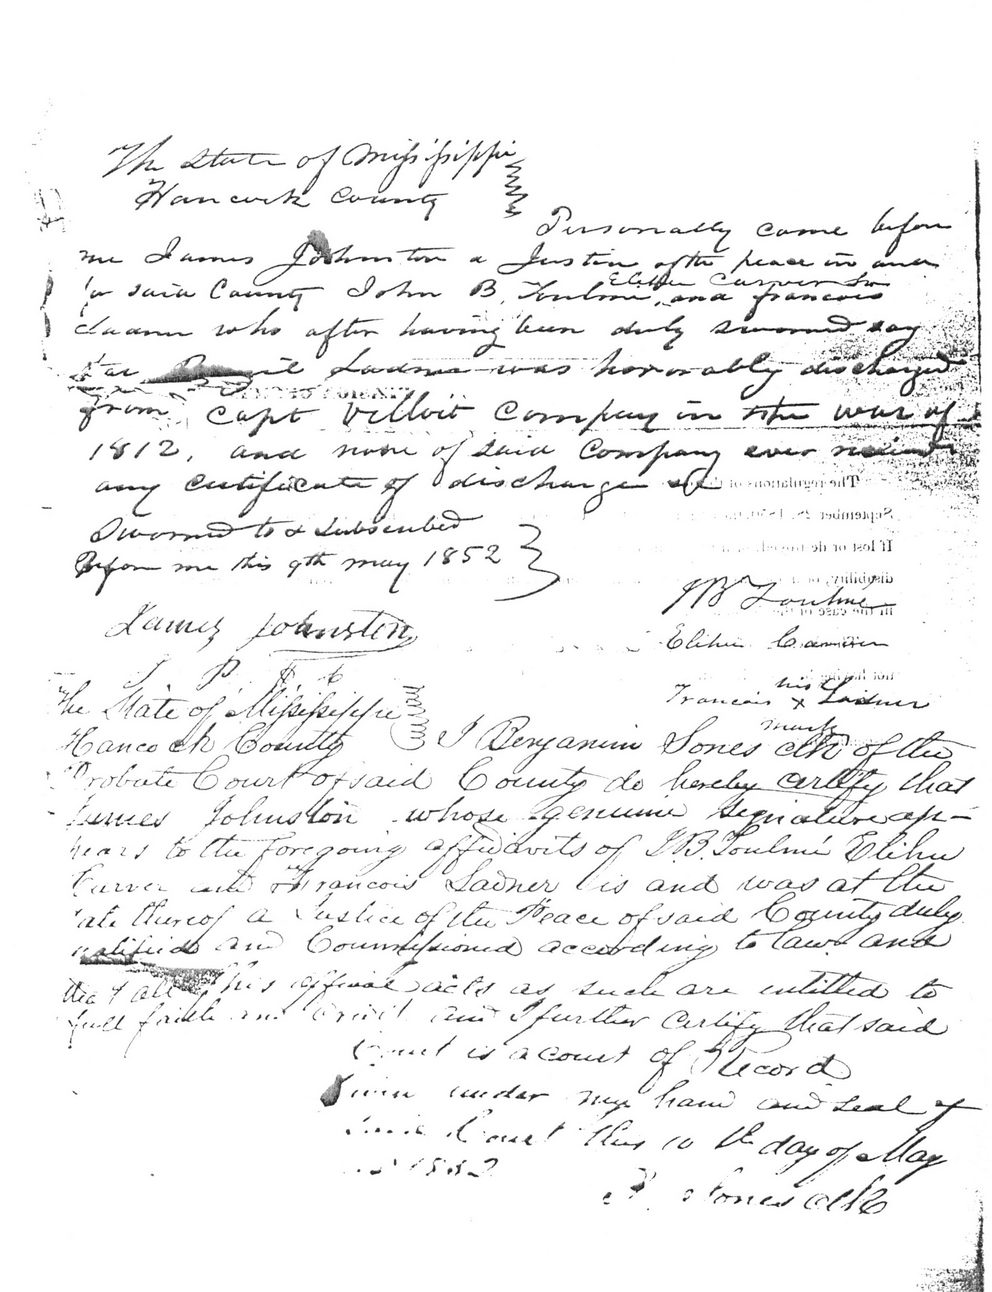 The State of Mississippi
Hancock County
Personally came before
me James Johnston a Justice of the peace in and
for said County John B, Toulme, Elihu Carver Sr and francois
Ladner who after having been duly sworned say
Ladner was honorably discharged
from Capt Villoit Company in the war of
1812, and none of said Company ever
any certificate of discharge
Sworned to & Subscribed
Before me this 9th may 1852
JB Toulme
James Johnston
Elihu Carver
J P H C
Francois his x mark Ladner
The State of Mississippi
Hancock County I Benjamin Sones clk of the
Probate Court of said County do hereby certify that
James Johnston whose genuine signature ap-
pears to the foregoing affidavits of J.B. Toulme Elihu
Carver and Francois Ladner is and was at the
date thereof a Justice of the Peace of said County duly
and Commissioned according to law and
that all his official acts as such are intitled to
full faith and credit and I further certify that said
Court is a court of Record
Given under my hand and seal of
said Court this 10th day of May
1852
B. Sones clk